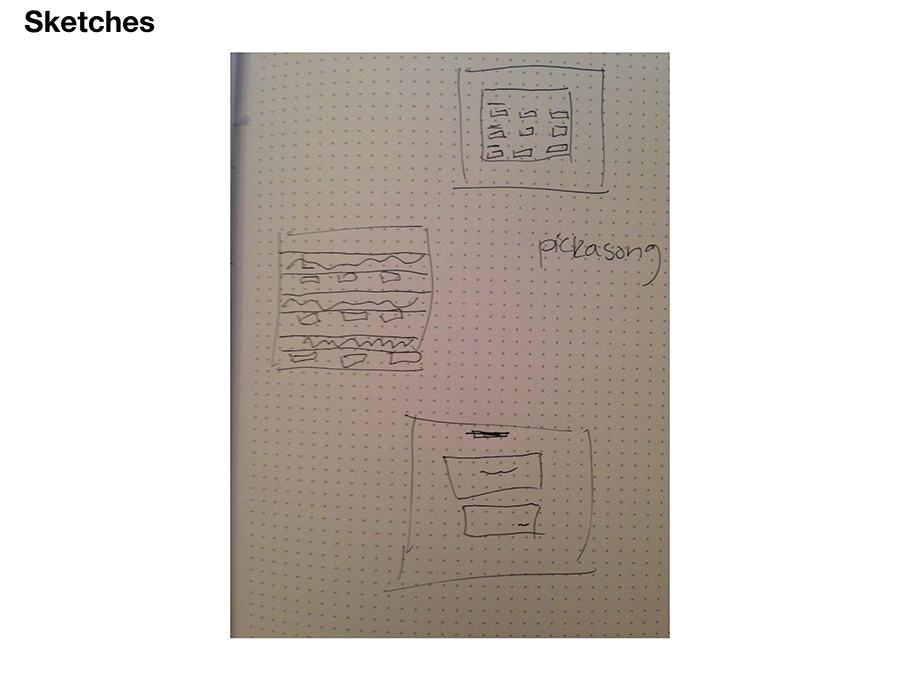 Sketches
pickasong